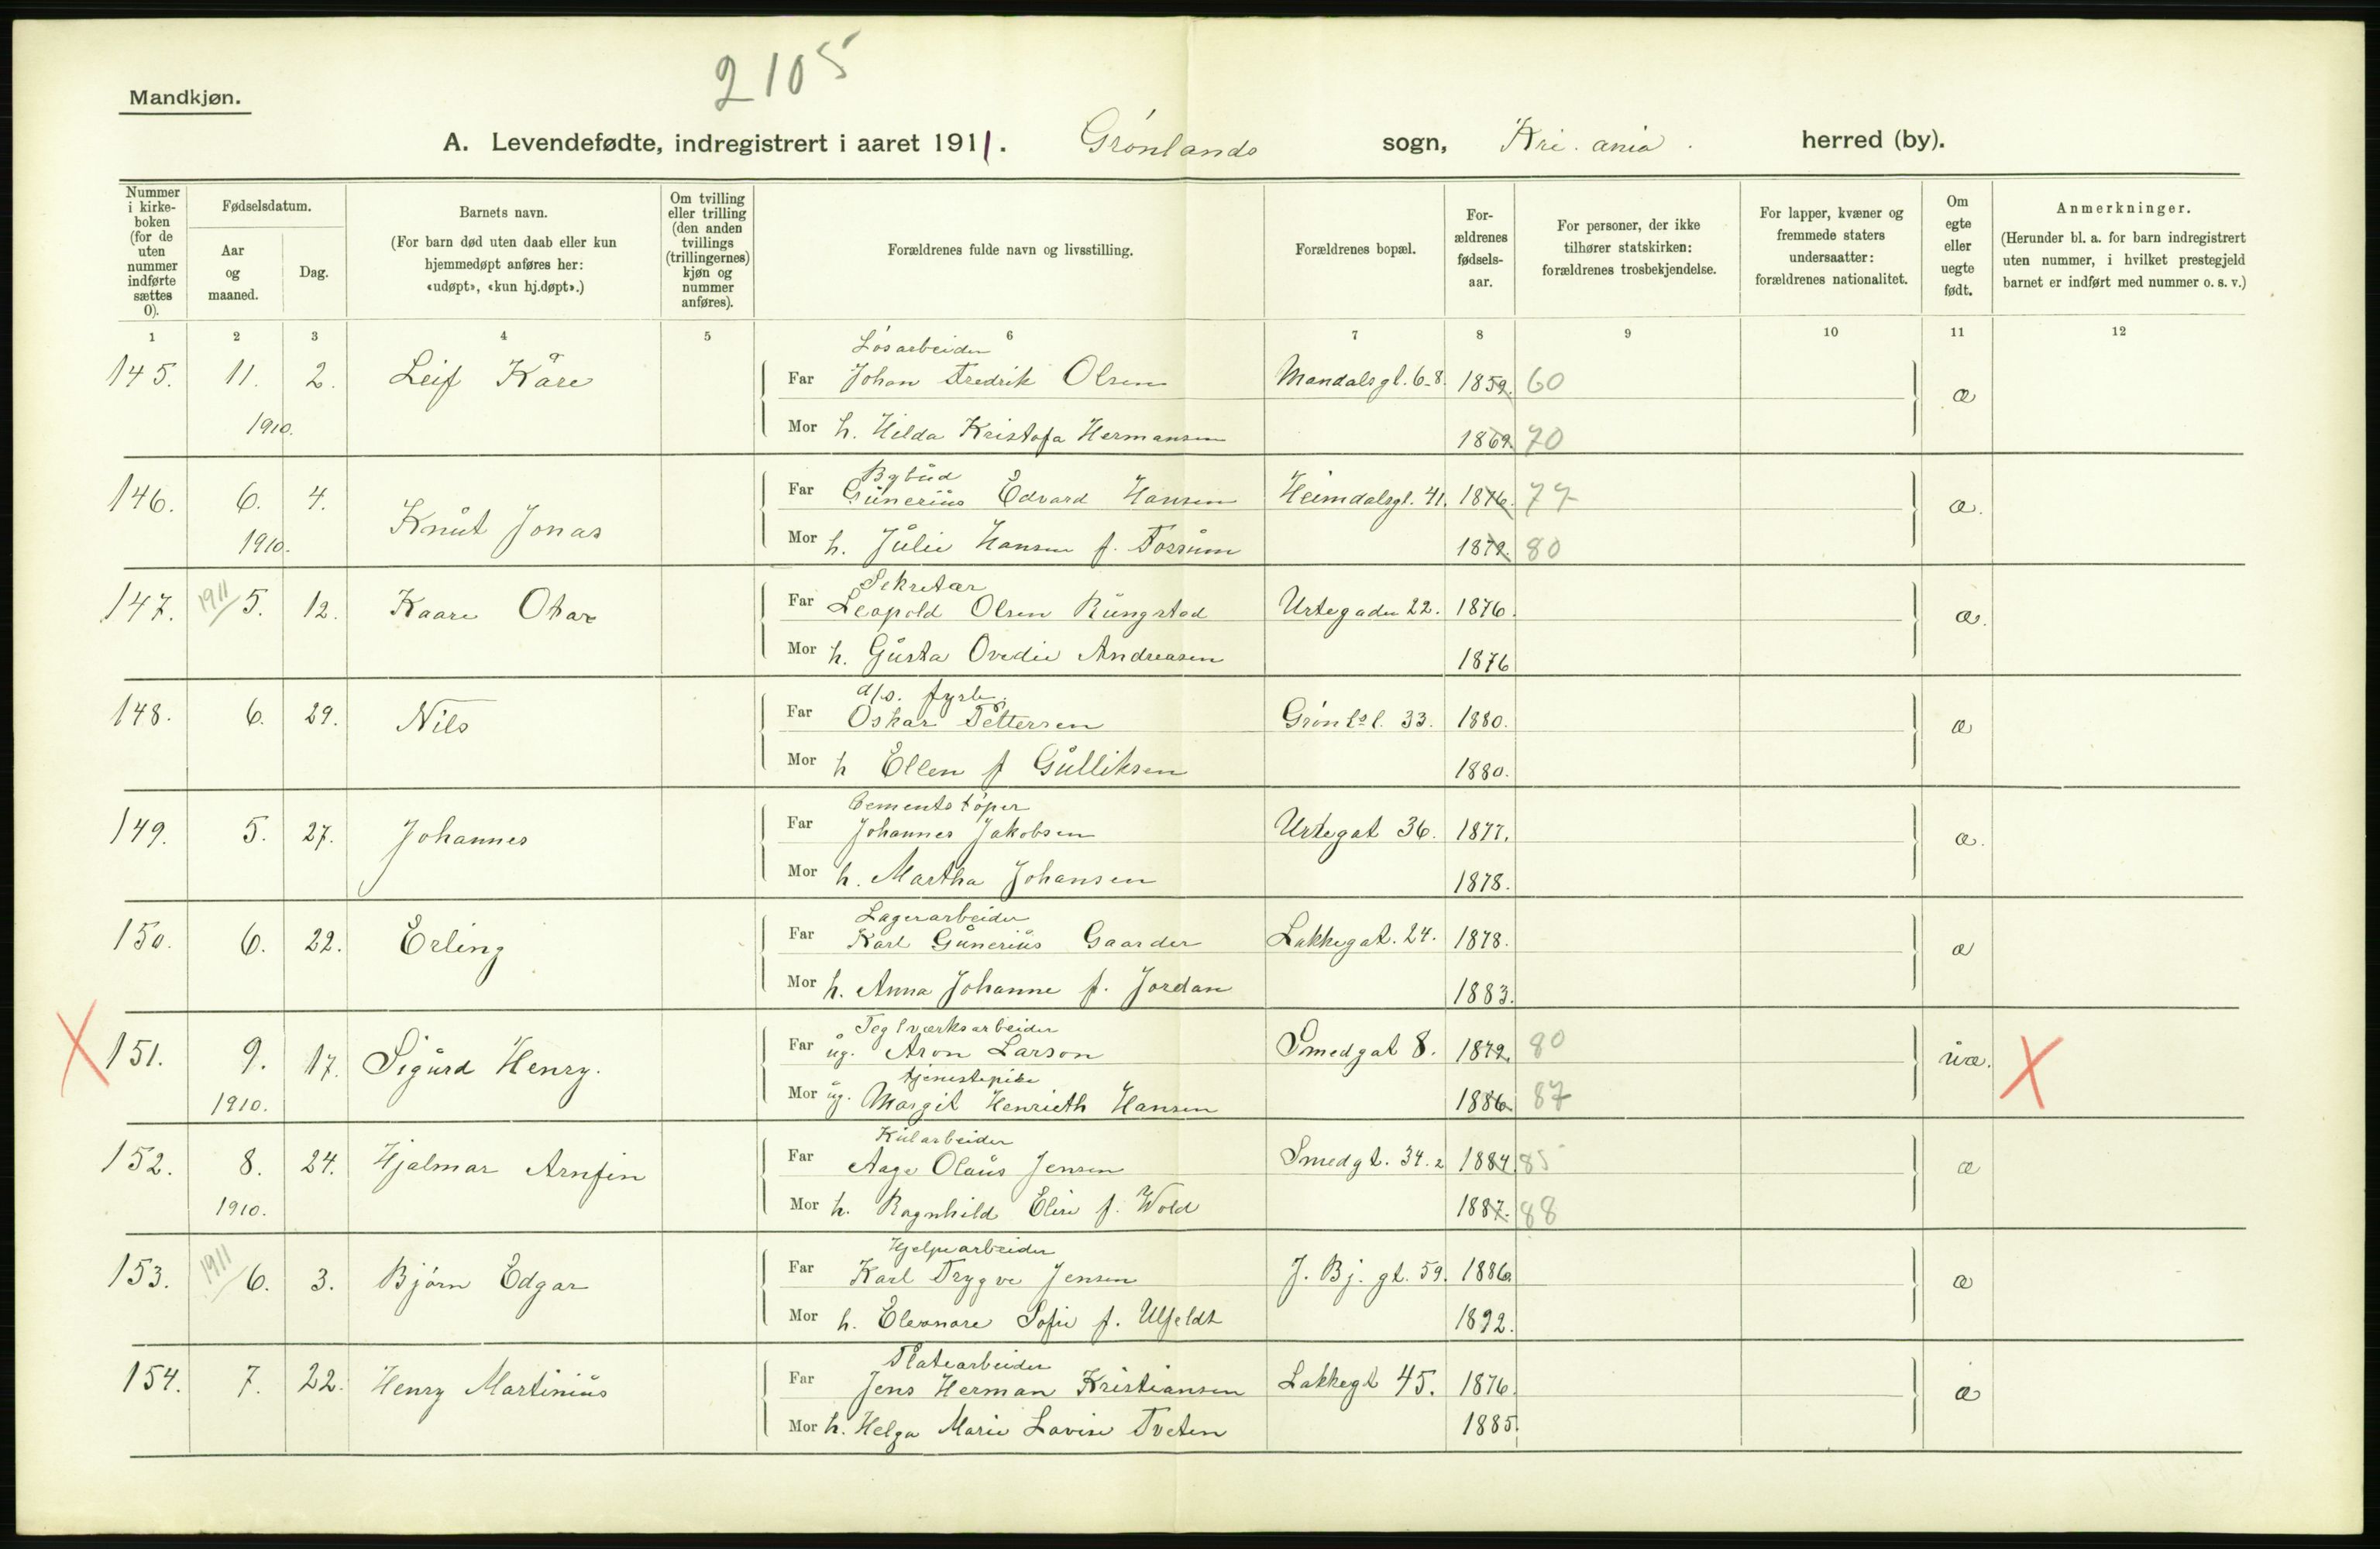 2105
Mandkjøn.
A. Levendefødte, indregistrert i aaret 1911. Grønlands sogn, Kri.ania. herred (by).
Nummer i kirke-boken (for de uten nummer indførte sættes 0).
Fødselsdatum.
Aar og maaned.
Dag.
Barnets navn.
(For barn død uten daab eller kun hjemmedøpt anføres her: «udøpt», «kun hj.døpt».)
Om tvilling eller trilling (den anden tvillings (trillingernes) kjøn og nummer anføres).
Forældrenes fulde navn og livsstilling.
Forældrenes bopæl.
For-ældrenes fødsels-aar.
For personer, der ikke tilhører statskirken: forældrenes trosbekjendelse.
For lapper, kvæner og fremmede staters undersaatter: forældrenes nationalitet.
Om egte eller uegte født.
Anmerkninger.
(Herunder bl. a. for barn indregistrert uten nummer, i hvilket prestegjeld barnet er indført med nummer o. s. v.)
1 2 3 4 5 6 7 8 9 10 11 12
Løsarbeider
145. 11. 2. Leif Kåre Far Johan Fredrik Olsen Mandalsgt. 6-8. 1859. 60 æ
1910. Mor h. Hilda Kristofa Hermansen 1869. 70
Bybud
146. 6. 4. Knut Jonas Far Gunerius Edvard Hansen Heimdalsgt. 41. 1876. 77 æ.
1910. Mor h. Julie Hansen f. Fossum 1879. 80
Sekretær
147. 1911/5. 12. Kaare Othar Far Leopold Olsen Rungstad Urtegaden 22. 1876. æ.
Mor h. Gusta Ovedie Andreasen 1876
d/s. fyrb.
148. 6. 29. Nils Far Oskar Pettersen Grønl.s l. 33. 1880. æ
Mor h Ellen f Gulliksen 1880.
Cementstøper
149. 5. 27. Johannes Far Johannes Jakobsen Urtegat 36. 1877. æ.
Mor h. Martha Johansen 1878.
Lagerarbeider
150. 6. 22. Erling Far Karl Gunerius Gaarder Lakkegat. 24. 1878. æ
Mor h. Anna Johanne f. Jordan 1883.
Teglværksarbeider
X 151. 9. 17. Sigurd Henry. Far ug. Aron Larson Smedgat 8. 1879. 80 uæ. X
tjenestepike
1910. Mor ug. Margit Henrieth Hansen 1886 87
Kularbeider
152. 8. 24. Hjalmar Arnfin Far Aage Olaus Jensen Smedgt. 34.2 1884 85 æ
1910. Mor h. Ragnhild Elise f. Wold 1887. 88
Hjelpearbeider
153. 1911/6. 3. Bjørn Edgar Far Karl Trygve Jensen J. Bj. gt. 59. 1886. æ
Mor h. Eleonore Sofie f. Ulfeldt 1892.
Platearbeider
154. 7. 22. Henry Martinius Far Jens Herman Kristiansen Lakkegt 45. 1876. æ
Mor h. Helga Marie Lovise Tveten 1885.